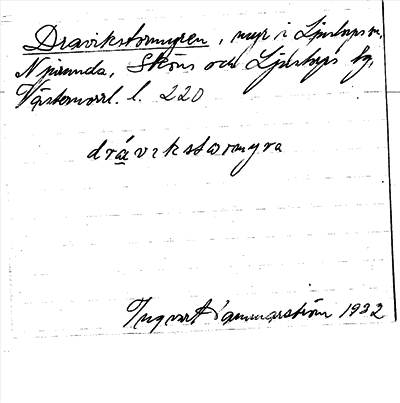 Dravikstormyren, myr i Ljustorps sn,
Njurunda, Sköns och Ljustorps tg,
Västernorrl. l. 220
drávıkstωrmyra
Ingvart Hammarström 1932